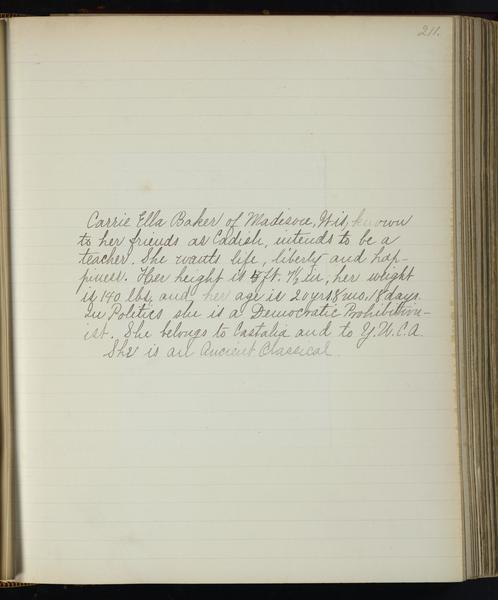 211.
Carrie Ella Baker of Madison, Wis, known
to her friends as Cadish, intends to be a
teacher. She wants life, liberty and hap-
piness. Her height is 5 ft. 7½ in, her weight
is 140 lbs, and her age is 20 yrs 8 mo. 18 days.
In Politics she is a Democratic Prohibition-
ist. She belongs to Castalia and to Y.W.C.A
She is an Ancient Classical.